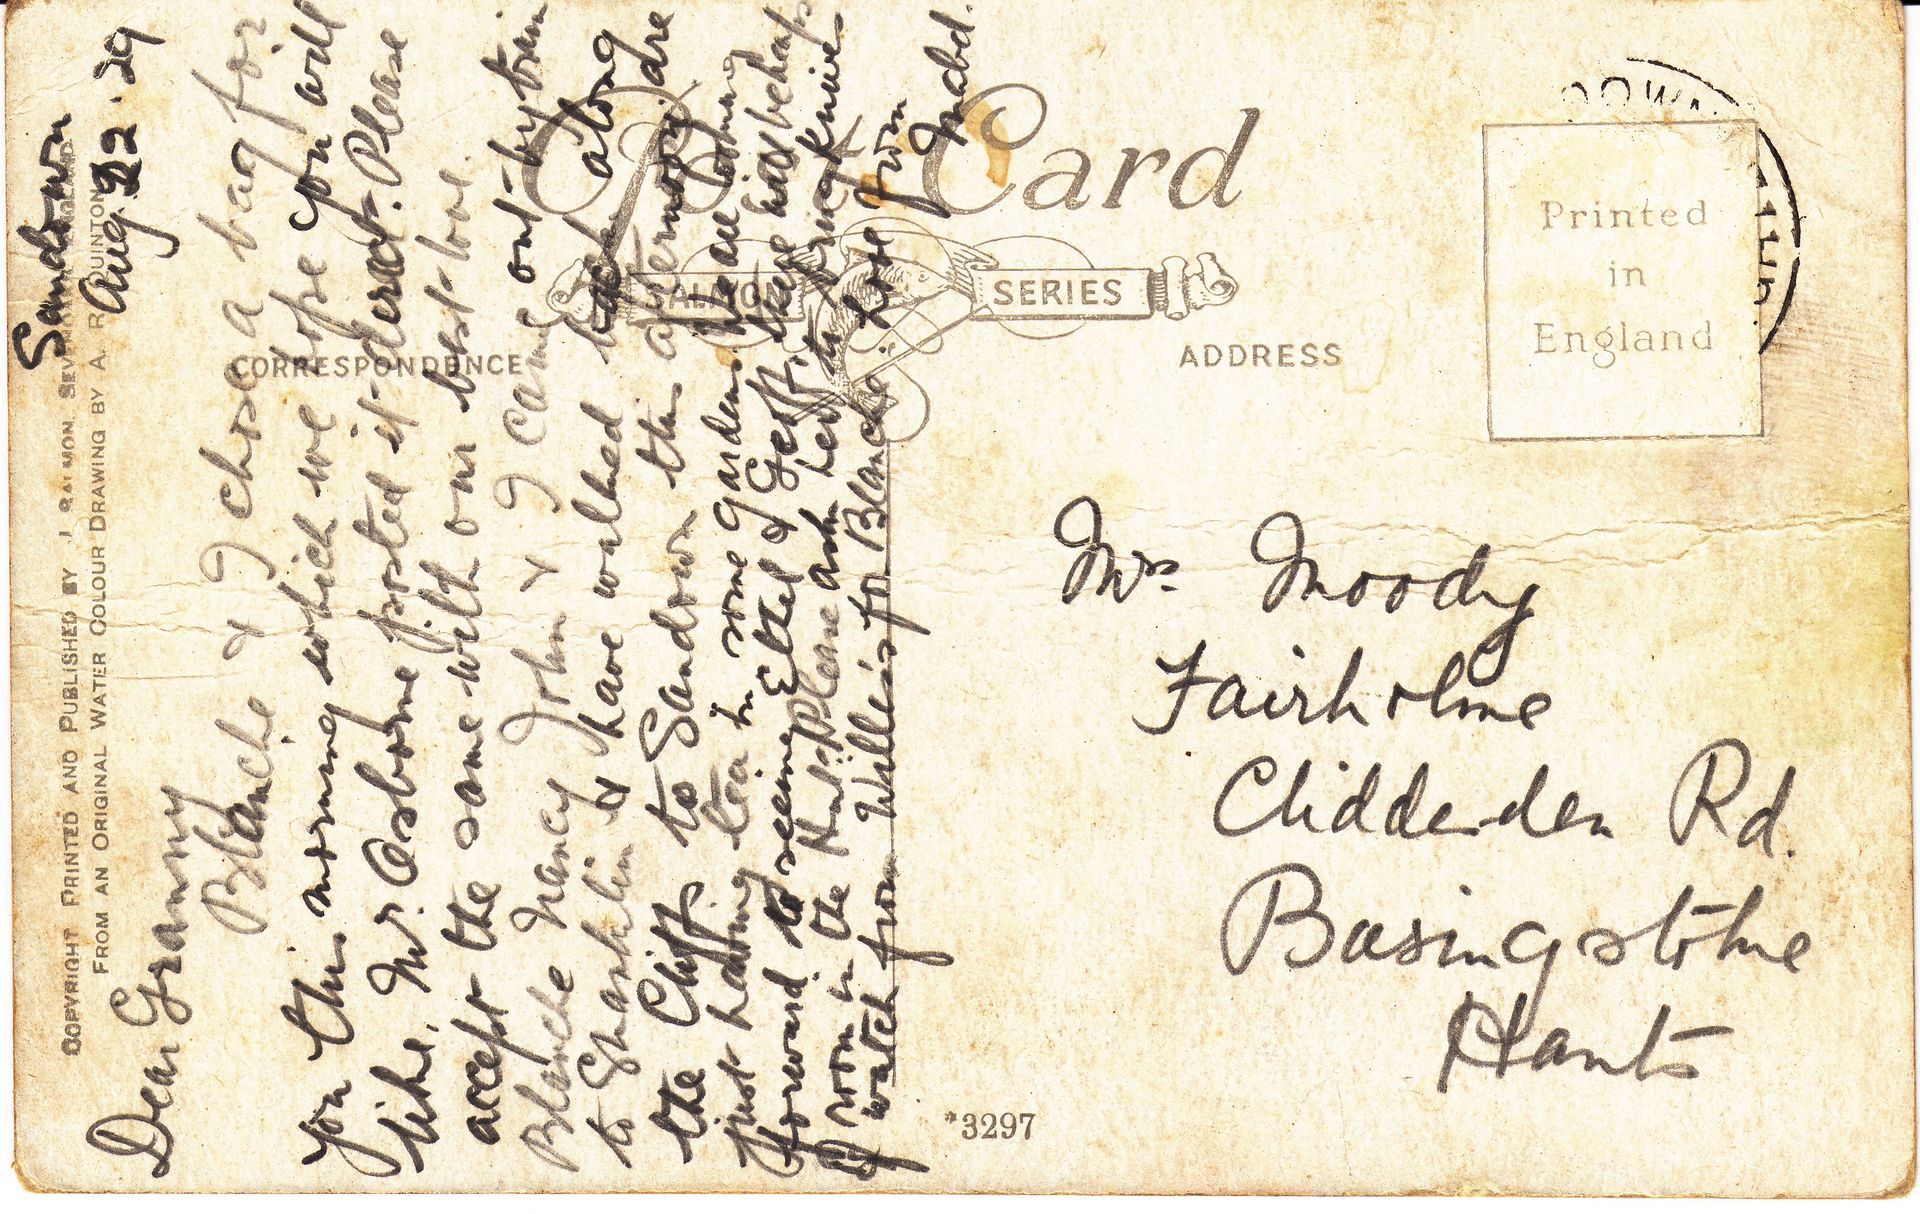 COPYRIGHT PRINTED AND PUBLISHED BY J SALMON SEVENOAKS ENGLAND
FROM AN ORIGINAL WATER COLOUR DRAWING BY A. R. QUINTON
Post Card
SALMON SERIES
CORRESPONDENCE
ADDRESS
Printed
in
England
Sandown
Aug. 22. 29
Dear Granny
Blanche & I chose a bag for
you this morning which we hope you will
like. Mr. Osborne posted it direct. Please
accept the same with our best love.
Blanche Nancy John & I came out by train
to Shanklin & have walked back along
the Cliff to Sandown this afternoon. We are
just having tea in some gardens. We are looking
forward to seeing Ethel & Geoff. they may perhaps
room in the Please ask her to bring knives
watch from Willis's for Blanche. Love from
Mabel.
Mrs Moody
Fairholme
Cliddesden Rd.
Basingstoke
Hants
*3297